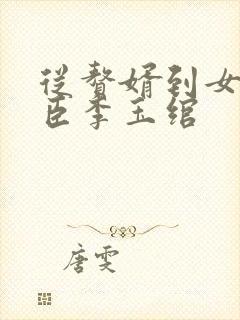 从赘婿到女
臣李玉绾
唐雯